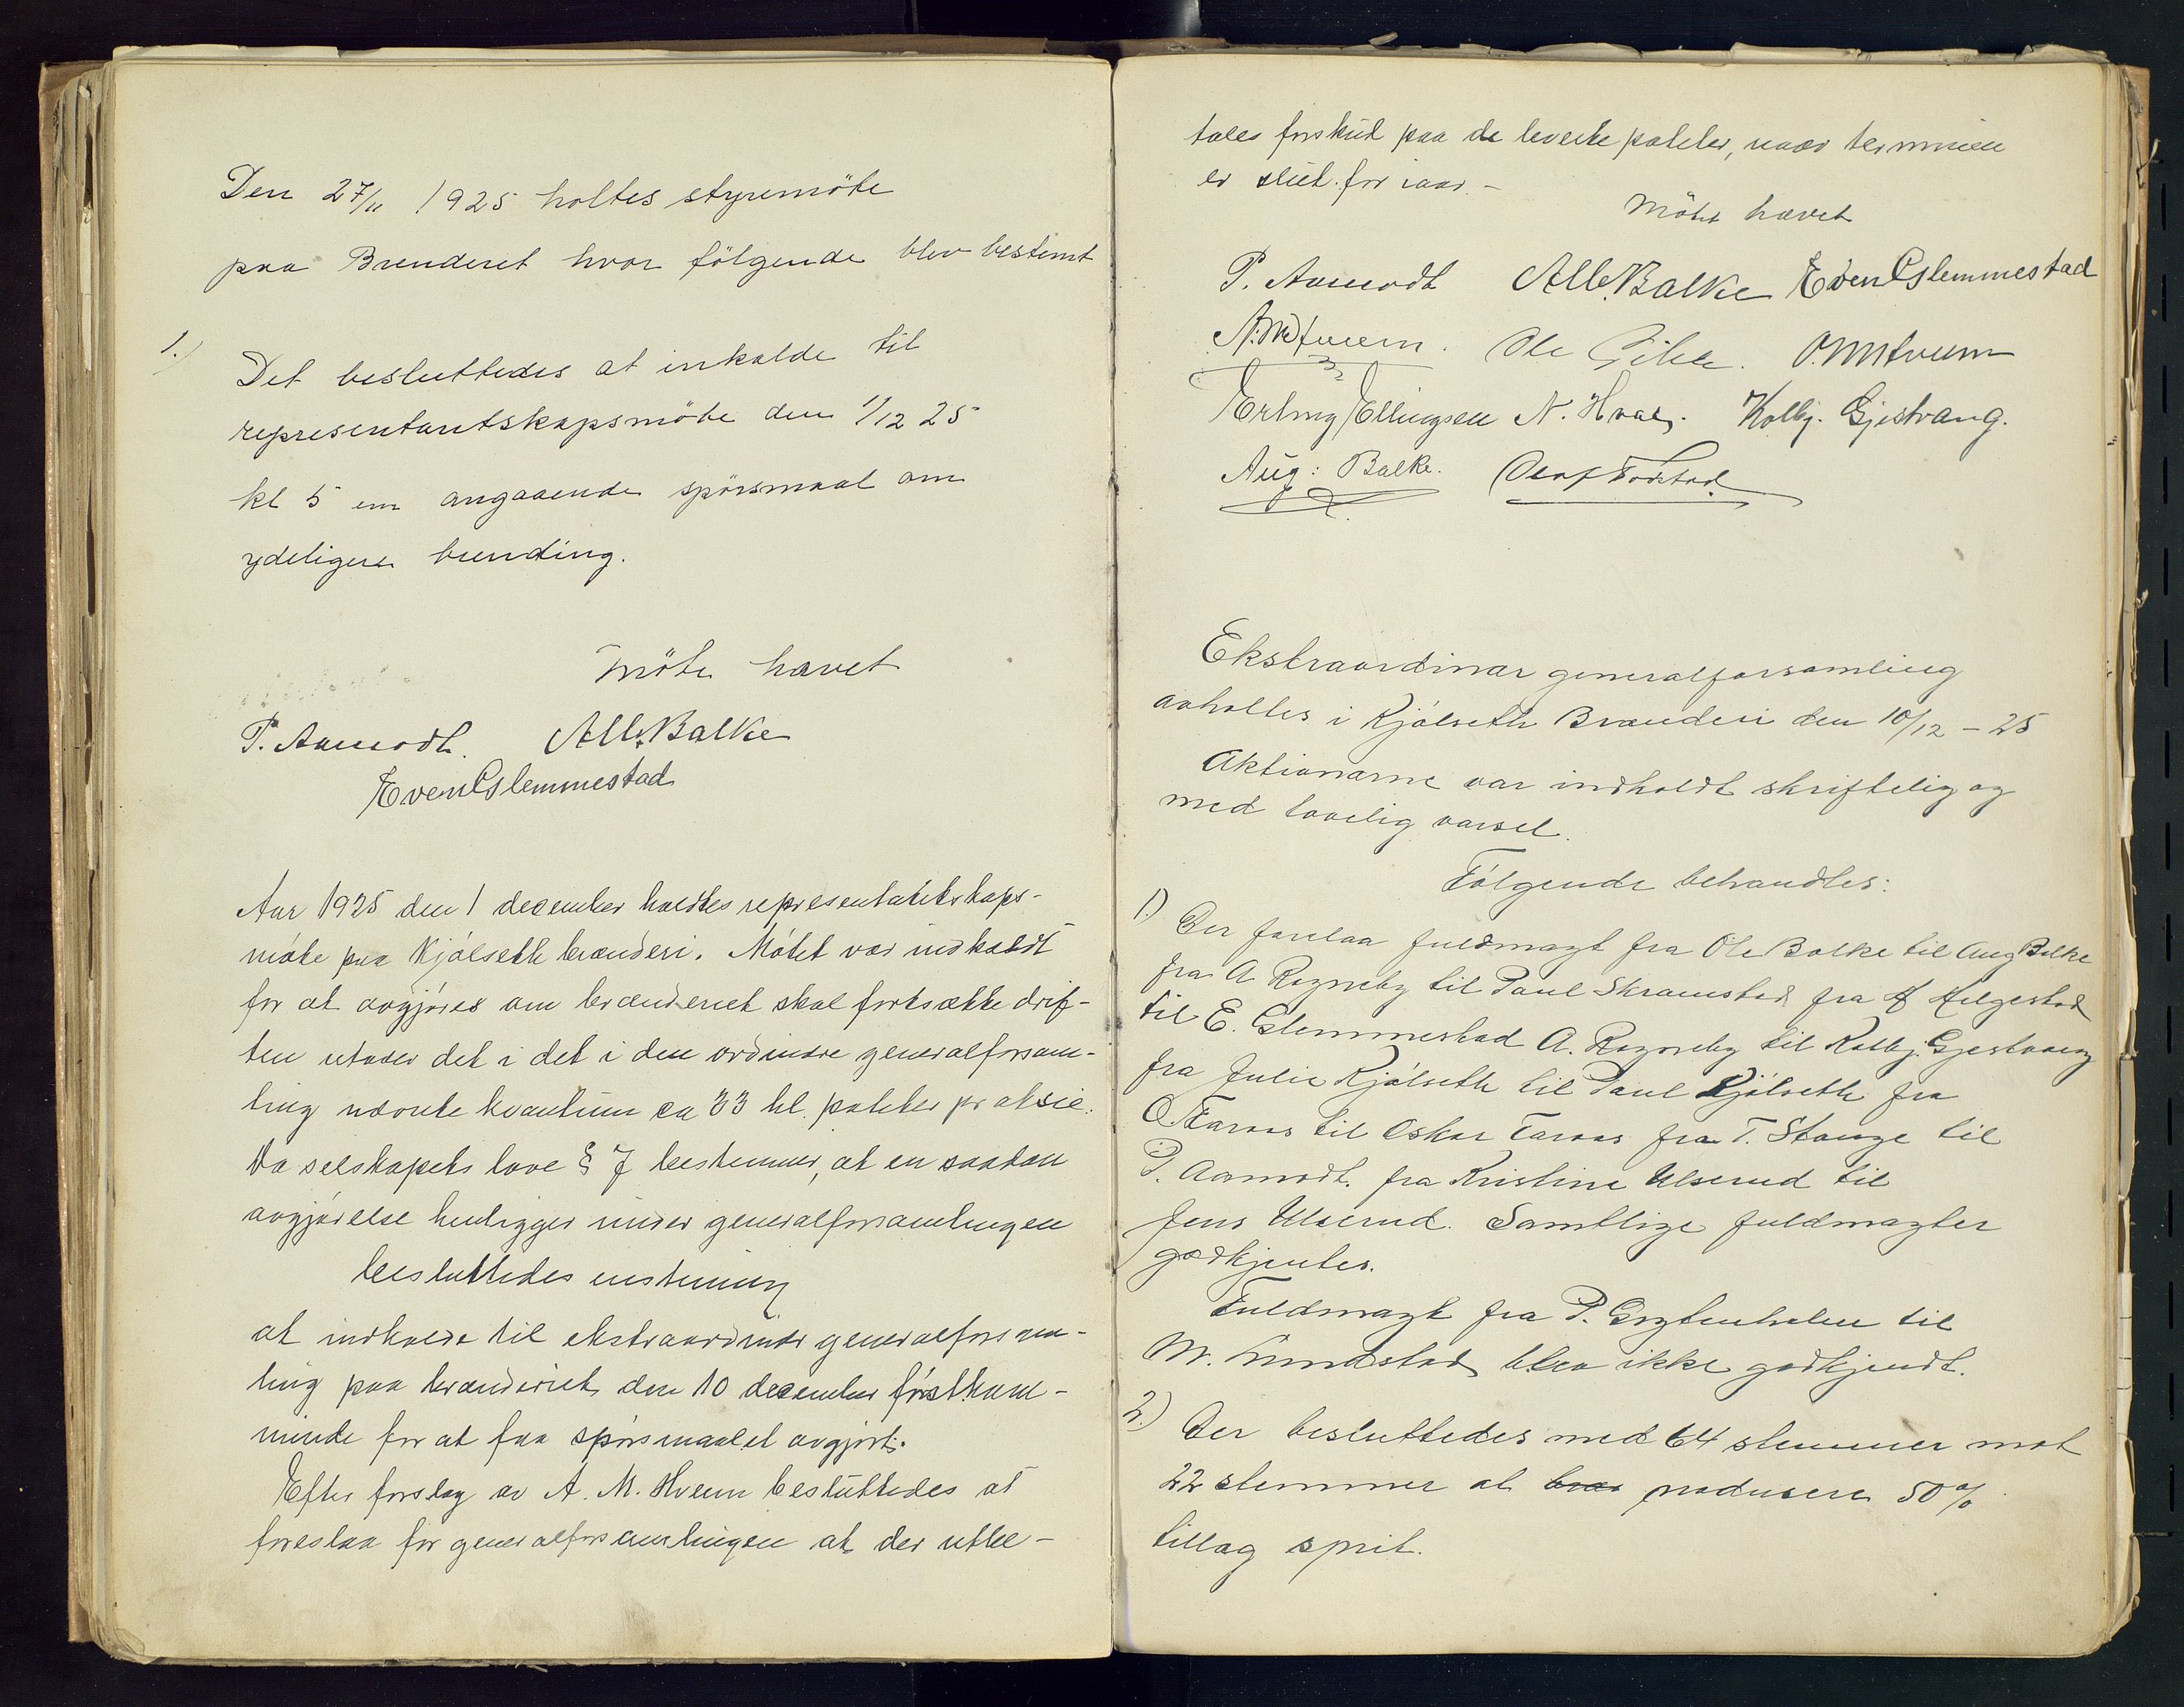 Den 27/11 1925 holtes styremöte
paa Brenderet hvor fölgende blev bestemt
1.) Det besluttedes at inkalde til
representantskapsmöte den 1/12 25
kl 5 em angaaende spörsmaal om
ydeligere brending.
Möte hævet
P. Aamodt. Alb. Balke
Even Glemmestad
Aar 1925 den 1 december holdtes representantskaps-
møte paa Kjölseth brænderi. Mötet var indkaldt
for at avgjøres om brænderiet skal fortsætte drif-
ten utover det i det i den ordinære generalforsam-
ling vedtatte kvantum ca 33 hl. poteter pr aksie.
Da selskapets love § 7 bestemmer, at en saadan
avgjørelse henligger under generalforsamlingen
besluttedes enstemmig
at indkalde til ekstraordinær generalforsam-
ling paa brænderiet den 10 december førstkom-
mende for at faa spørsmaalet avgjort.
Efter forslag av A. M. Hveem besluttedes at
foreslaa for generalforsamlingen at der utbe-
tales forskud paa de leverte poteter, naar terminen
er slut for iaar. -
Mötet hævet
P. Aamodt Alb. Balke Even Glemmestad
A. M. Hveem. Ole Gihle. O. M. Hveem
Erling Ellingsen N. Hval. Kolbj. Gjestvang.
Aug: Balke. Olaf
Ekstraordinær generalforsamling
avholtes i Kjölseth Brænderi den 10/12 - 25
Aktionærne var indkaldt skriftelig og
med lovelig varsel.
Fölgende behandles:
1.) Der forelaa fuldmagt fra Ole Balke til Aug Balke
fra A Rogneby til Paul Skramstad fra A Helgestad
til E. Glemmestad A. Rogneby til Kolbj. Gjestvang
fra Julie Kjölseth til Paul Kjölseth fra
O Faraas til Oskar Faraas fra T. Stange til
P. Aamodt. fra Kristine Ulserud til
Jens Ulserud. Samtlige fuldmagter
godkjentes.
Fuldmagt fra P. Grytenholm til
M. Lundstad blev ikke godkjendt.
2.) Der besluttedes med 64 stemmer mot
22 stemmer at producere 50%
tillæg sprit.